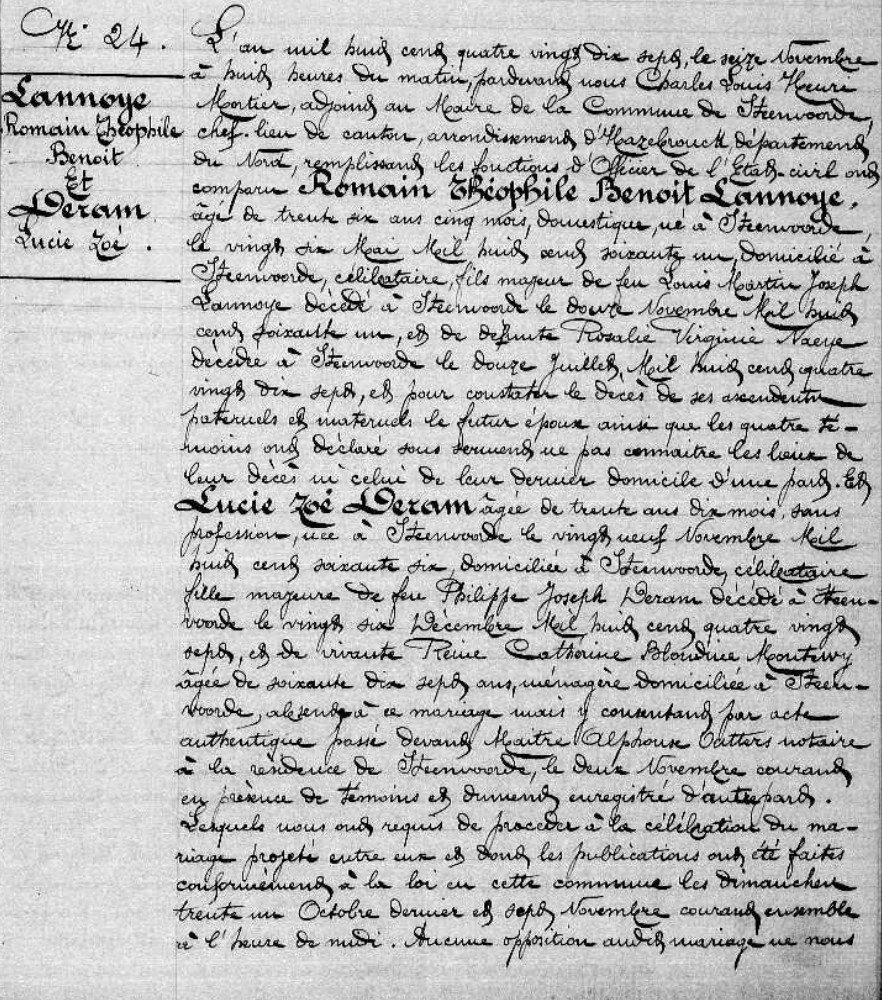 N° 24.
Lannoye
Romain Théophile
Benoit
Et
Deram
Lucie Zoé.
L'an mil huit cent quatre vingt dix sept, le seize Novembre
à huit heures du matin, pardevant nous Charles Louis Henri
Mortier, adjoint au Maire de la Commune de Steenvoorde,
chef-lieu de canton, arrondissement d'Hazebrouck, département
du Nord, remplissant les fonctions d'Officier de l'Etat-civil ont
comparu Romain Théophile Benoit Lannoye,
âgé de trente six ans cinq mois, domestique, né à Steenvoorde,
le vingt six Mai Mil huit cent soixante un, domicilié à
Steenvoorde, célibataire, fils majeur de feu Louis Martin Joseph
Lannoye décédé à Steenvoorde le douze Novembre Mil huit
cent soixante un, et de defunte Rosalie Virginie Naeye
décédée à Steenvoorde le douze Juillet Mil huit cent quatre
vingt dix sept, et pour constater le décès de ses ascendents
paternels et maternels le futur époux ainsi que les quatre té-
moins ont déclaré sous serment ne pas connaitre les lieux de
leur décès ni celui de leur dernier domicile d'une part. Et
Lucie Zoé Deram âgée de trente ans dix mois, sans
profession, née à Steenvoorde le vingt neuf Novembre Mil
huit cent soixante six, domiciliée à Steenvoorde, célibataire
fille majeure de feu Philippe Joseph Deram décédé à Steen-
voorde le vingt six Décembre Mil huit cent quatre vingt
sept, et de vivante Reine Catherine Blondine
âgée de soixante dix sept ans, ménagère domiciliée à Steen-
voorde, absente à ce mariage mais y consentant par acte
authentique passé devant Maitre Alphonse notaire
à la résidence de Steenvoorde, le deux Novembre courant
en présence de témoins et dument enregistré d'autre part.
Lesquels nous ont requis de procéder à la célébration du ma-
riage projeté entre eux et dont les publications ont été faites
conformément à la loi en cette commune les dimanches
trente un Octobre dernier et sept Novembre courant ensemble
à l'heure de midi. Aucune opposition audit mariage ne nous